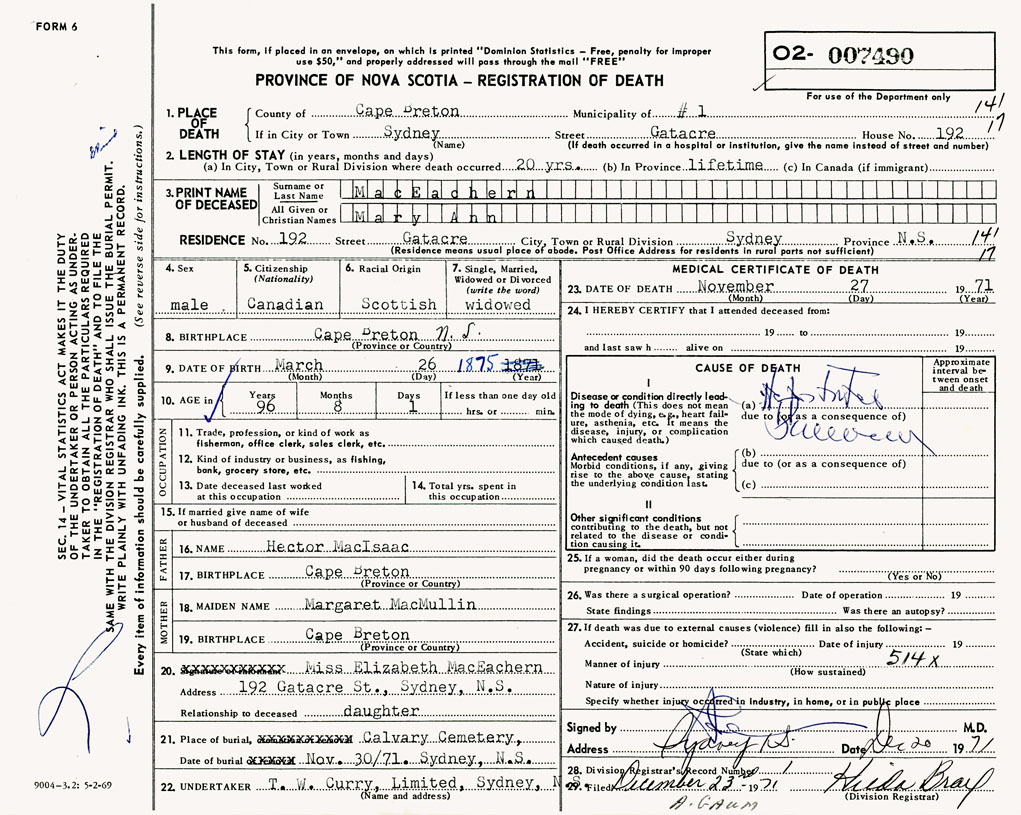 FORM 6
This form, if placed in an envelope, on which is printed "Dominion Statistics – Free, penalty for improper
use $50," and properly addressed will pass through the mail "FREE"
PROVINCE OF NOVA SCOTIA – REGISTRATION OF DEATH
O2- 007490
For use of the Department only
1. PLACE OF DEATH County of Cape Breton Municipality of # 1 141
If in City or Town Sydney Street Gatacre House No. 192 17
(Name) (If death occurred in a hospital or institution, give the name instead of street and number)
2. LENGTH OF STAY (in years, months and days)
(a) In City, Town or Rural Division where death occurred 20 yrs. (b) In Province lifetime (c) In Canada (if immigrant)
3. PRINT NAME OF DECEASED Surname or Last Name MacEachern
All Given or Christian Names Mary Ann
RESIDENCE No. 192 Street Gatacre City, Town or Rural Division Sydney Province N.S. 141
(Residence means usual place of abode. Post Office Address for residents in rural parts not sufficient) 17
4. Sex
male
5. Citizenship
(Nationality)
Canadian
6. Racial Origin
Scottish
7. Single, Married,
Widowed or Divorced
(write the word)
widowed
8. BIRTHPLACE Cape Breton N.S.
(Province or Country)
9. DATE OF BIRTH March 26 1875 1871
(Month) (Day) (Year)
10. AGE in Years Months Days If less than one day
96 8 1 hrs. or min.
OCCUPATION
11. Trade, profession, or kind of work as
fisherman, office clerk, sales clerk, etc.
12. Kind of industry or business, as fishing,
bank, grocery store, etc.
13. Date deceased last worked
at this occupation
14. Total yrs. spent in
this occupation
15. If married give name of wife
or husband of deceased
FATHER
16. NAME Hector MacIsaac
17. BIRTHPLACE Cape Breton
(Province or Country)
MOTHER
18. MAIDEN NAME Margaret MacMullin
19. BIRTHPLACE Cape Breton
(Province or Country)
20. xxxxxxxxxxx Miss Elizabeth MacEachern
Address 192 Gatacre St., Sydney, N.S.
Relationship to deceased daughter
21. Place of burial, xxxxxxxxxx Calvary Cemetery,
Date of burial xxxxx Nov. 30/71. Sydney, N.S.
22. UNDERTAKER T. W. Curry, Limited, Sydney, N.S.
(Name and address)
MEDICAL CERTIFICATE OF DEATH
23. DATE OF DEATH November 27 1971
(Month) (Day) (Year)
24. I HEREBY CERTIFY that I attended deceased from:
19 to 19
and last saw h alive on 19
CAUSE OF DEATH
Approximate
interval be-
tween onset
and death
I
Disease or condition directly lead-
ing to death (This does not mean
the mode of dying, e.g., heart fail-
ure, asthenia, etc. It means the
disease, injury, or complication
which caused death.)
(a)
due to (or as a consequence of)
Antecedent causes
Morbid conditions, if any, giving
rise to the above cause, stating
the underlying condition last.
(b)
due to (or as a consequence of)
(c)
II
Other significant conditions
contributing to the death, but not
related to the disease or condi-
tion causing it.
25. If a woman, did the death occur either during
pregnancy or within 90 days following pregnancy?
(Yes or No)
26. Was there a surgical operation? Date of operation 19
State findings Was there an autopsy?
27. If death was due to external causes (violence) fill in also the following: –
Accident, suicide or homicide? Date of injury 19
(State which)
Manner of injury 514x
(How sustained)
Nature of injury
Specify whether injury occurred in Industry, in home, or in public place
Signed by M.D.
Address Sydney N.S. Date Dec 20 1971
28. Division Registrar's Record Number
29. Filed December 23 1971
(Division Registrar)
SEC. 14 – VITAL STATISTICS ACT MAKES IT THE DUTY
OF THE UNDERTAKER OR PERSON ACTING AS UNDER-
TAKER TO OBTAIN ALL THE PARTICULARS REQUIRED
IN THE "REGISTRATION OF DEATH" AND TO FILE THE
SAME WITH THE DIVISION REGISTRAR WHO SHALL ISSUE THE BURIAL PERMIT.
WRITE PLAINLY WITH UNFADING INK. THIS IS A PERMANENT RECORD.
Every item of information should be carefully supplied. (See reverse side for instructions.)
9004-3.2: 5-2-69